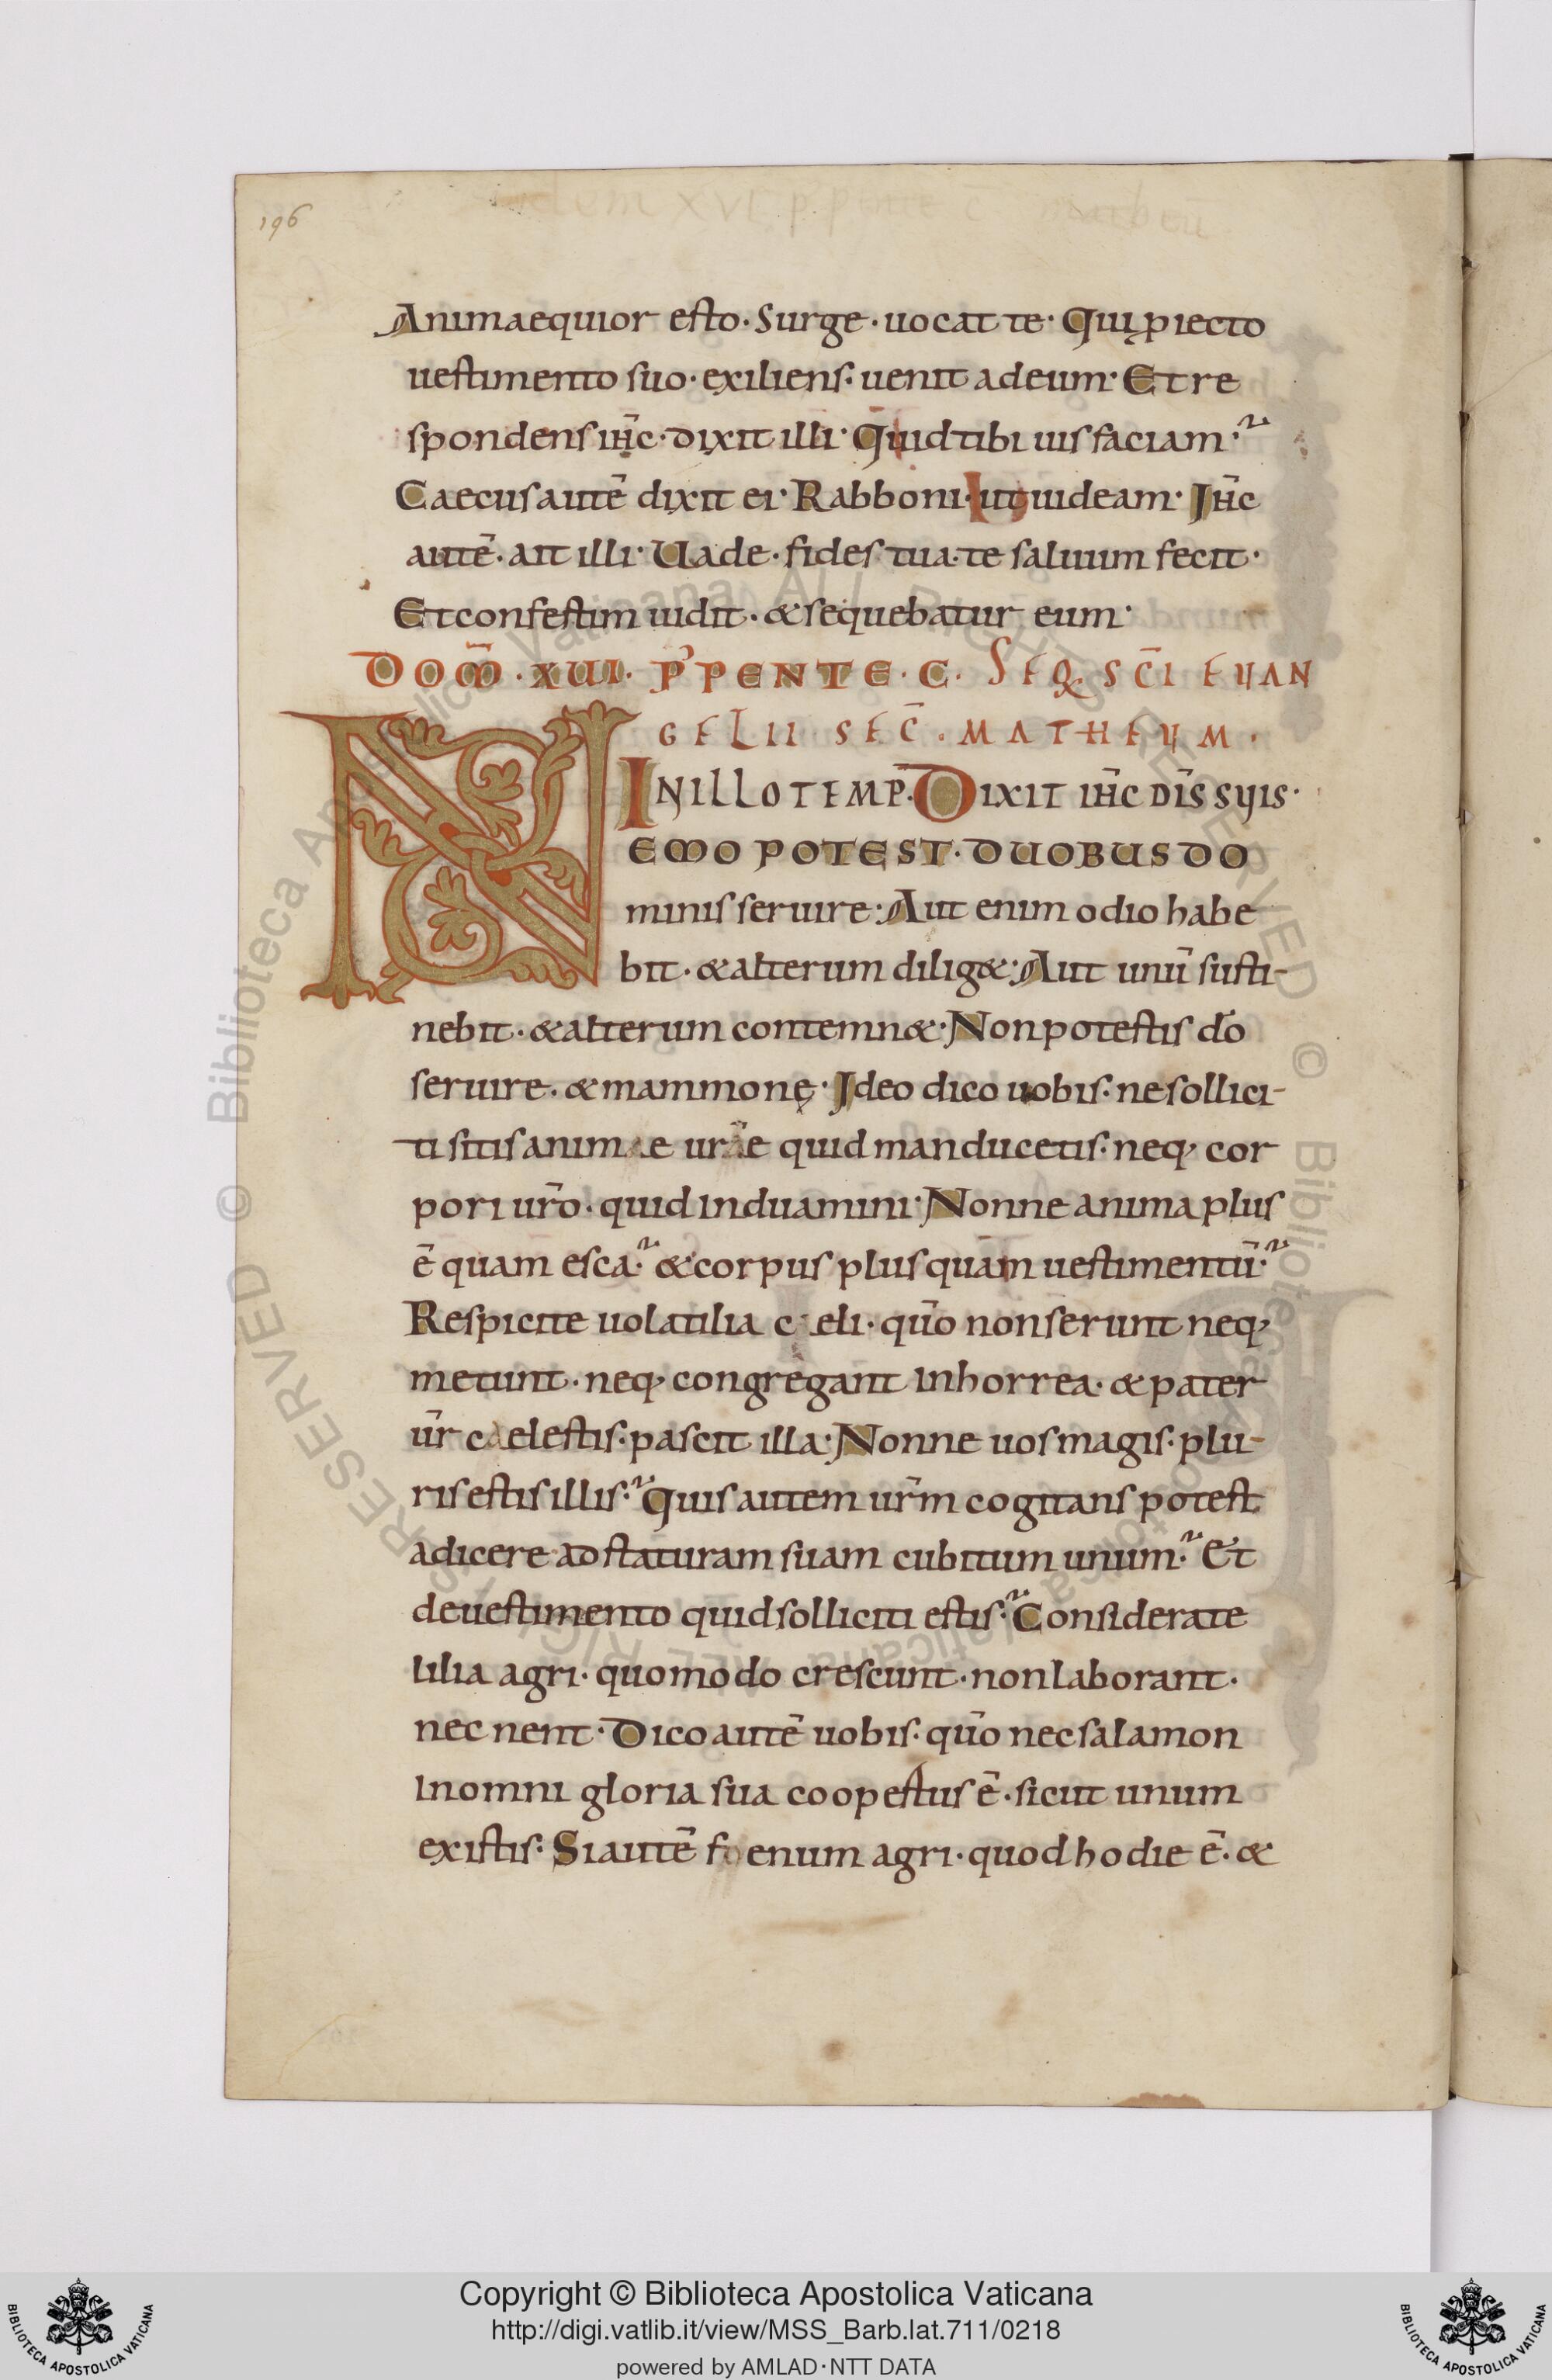 196
Animaequior esto· Surge· uocat te· Qui ꝓiecto
uestimento suo· exiliens· uenit adeum· Et re
spondens ih̄c· dixit illi· Quid tibi uis faciam·
Caecus autē dixit ei· Rabboni· ut uideam· Ih̄c
autē· ait illi· Uade· fides tua· te saluum fecit·
Et confestim uidit· & sequebatur eum·
DOM̄· XUI· P' PENTE· C· SEQ· SC̄I EUAN
GELII· SEC̄· MATHEUM·
IN ILLO TEMP̄· DIXIT IH̄C DIS̄ SUIS·
NEMO POTEST· DUOBUS DO
minis seruire· Aut enim odio habe
bit· & alterum dilig&· Aut unū susti-
nebit· & alterum contemn&· Non potestis dō
seruire· & mammonę· Ideo dico uobis· ne sollici-
ti sitis animae ur̄ae quid manducetis· neq; cor
pori ur̄o· quid induamini· Nonne anima plus
ē quam esca· & corpus plus quam uestimentū·
Respicite uolatilia caeli· qūo non serunt neq;
metunt· neq; congregant in horrea· & pater
ūr caelestis· pascit illa· Nonne uos magis· plu-
ris estis illis· Quis autem ur̄m cogitans potest
adicere ad staturam suam cubitum unum· Et
de uestimento quid solliciti estis· Considerate
lilia agri· quomodo crescunt· non laborant·
nec nent· Dico autē uobis· qūo nec salamon
in omni gloria sua coopertus ē· sicut unum
ex istis· Si autē foenum agri· quod hodie ē· &
Copyright © Biblioteca Apostolica Vaticana
http://digi.vatlib.it/view/MSS_Barb.lat.711/0218
powered by AMLAD·NTT DATA
BIBLIOTECA APOSTOLICA VATICANA
BIBLIOTECA APOSTOLICA VATICANA